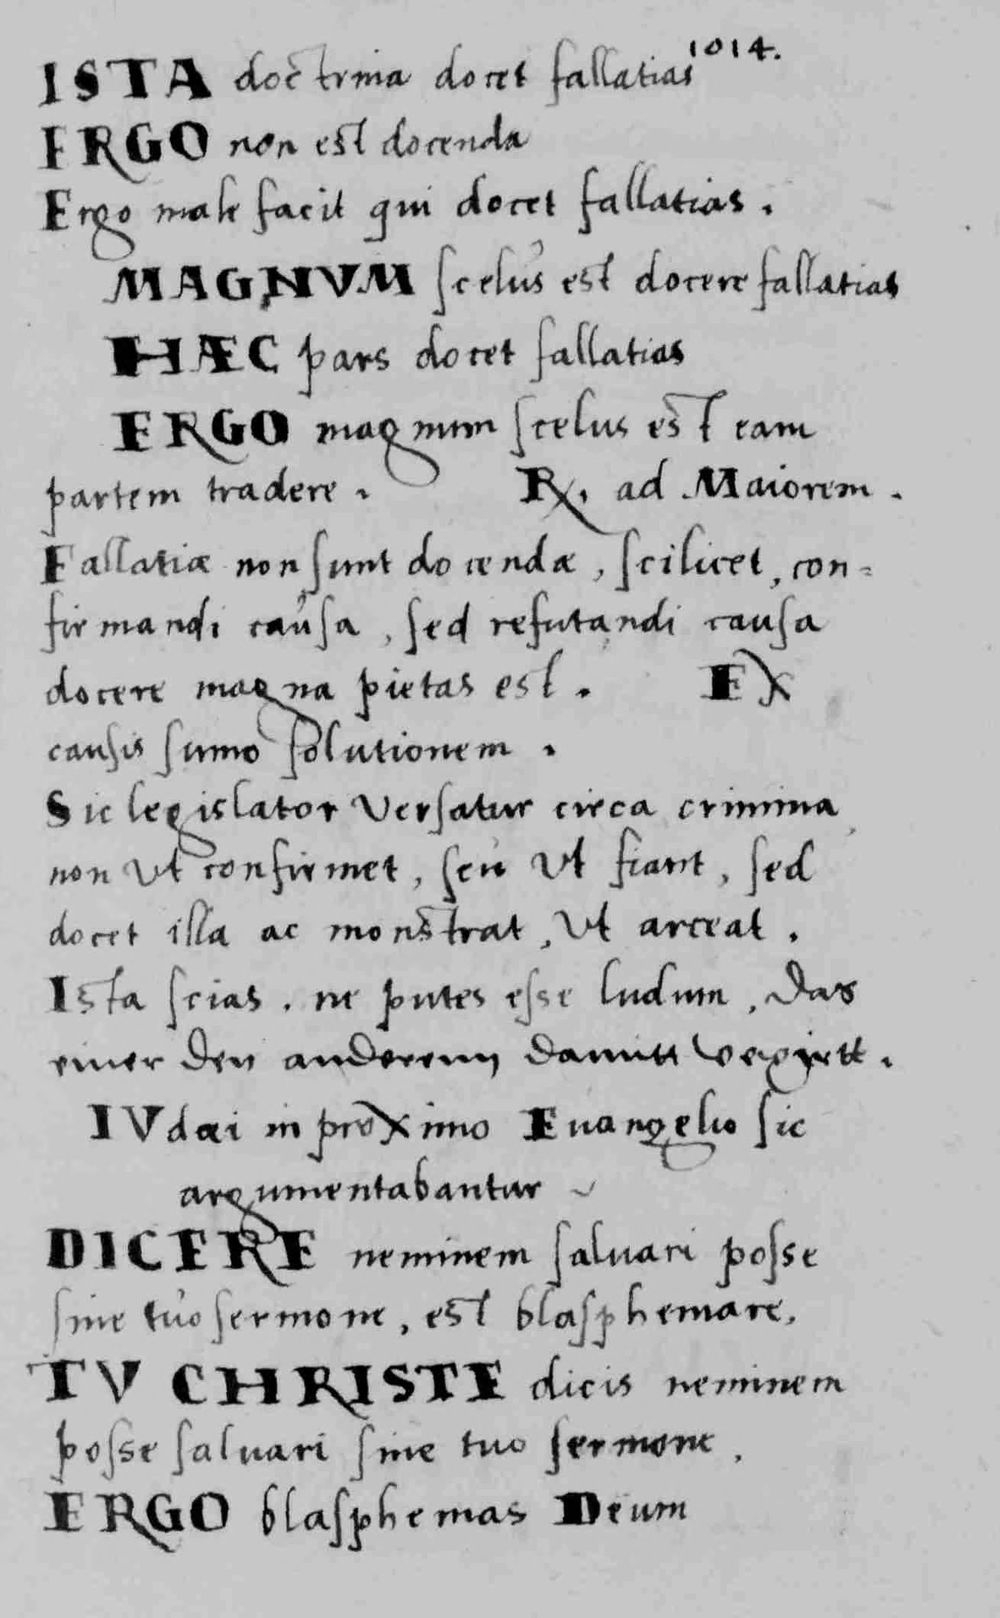 1014.
ISTA doctrina docet fallatias
ERGO non est docenda
Ergo male facit qui docet fallatias.
MAGNVM scelus est docere fallatias
HÆC pars docet fallatias
ERGO magnum scelus est eam
partem tradere. R. ad Maiorem.
Fallatiæ non sunt docendæ, scilicet, con=
firmandi causa, sed refutandi causa
docere magna pietas est. EX
causis sumo solutionem.
Sic legislator versatur circa crimina
non vt confirmet, seu vt fiant, sed
docet illa ac monstrat, vt arceat.
Ista scias. ne putes esse ludum, das
einer den anderenn damitt vexirtt.
IVdæi in proximo Euangelio sic
argumentabantur
DICERE neminem saluari posse
sine tuo sermone, est blasphemare,
TV CHRISTE dicis neminem
posse saluari sine tuo sermone,
ERGO blasphemas Deum